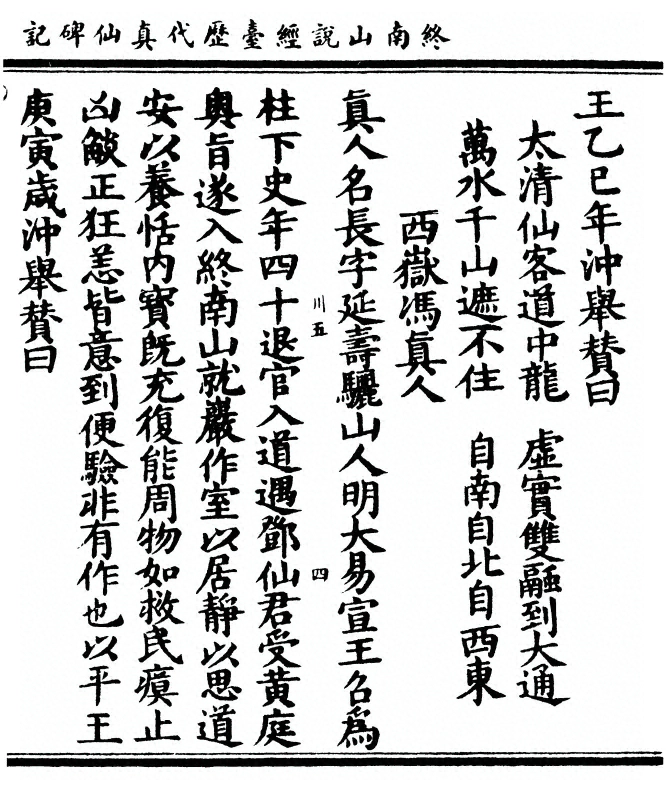 終南山說經臺歷代真仙碑記
王乙巳年沖舉賛曰
太清仙客道中龍　虛實雙融到大通
萬水千山遮不住　自南自北自西東
西嶽馮真人
真人名長字延壽驪山人明大易宣王召爲
柱下史年四十退官入道遇鄧仙君受黃庭
川五　四
奧旨遂入終南山就巖作室以居靜以思道
安以養恬内寶旣充復能周物如救民瘼止
凶皴正狂恙皆意到便驗非有作也以平王
庚寅歲沖舉賛曰